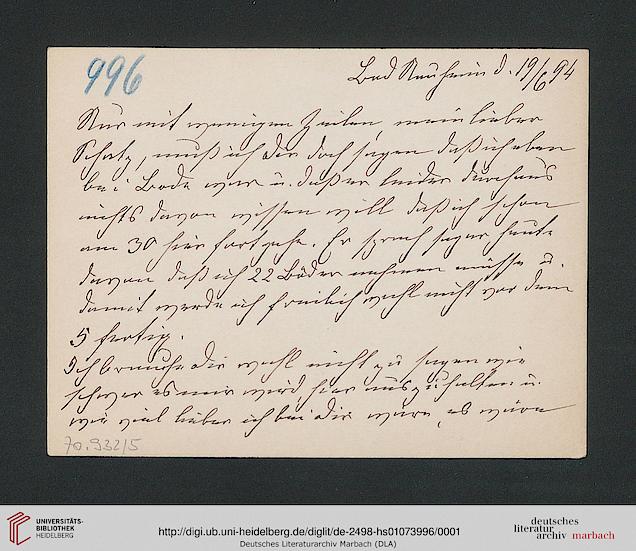 996
Bad Nauheim d. 19/6 94
Nur mit wenigen Zeilen, mein lieber
Schatz, muß ich Dir doch sagen daß ich eben
bei Bode war u. daß er leider durchaus
nichts davon wissen will daß ich schon
am 30 hier fortgehe. Er sprach sogar heute
davon daß ich 22 Bäder nehmen müsse u.
damit werde ich freilich wohl nicht vor dem
5 fertig.
Ich brauche Dir wohl nicht zu sagen wie
schwer es mir wird, hier auszuhalten u.
wie viel lieber ich bei Dir wäre, es wäre
70.932/5
UNIVERSITÄTS-
BIBLIOTHEK
HEIDELBERG
http://digi.ub.uni-heidelberg.de/diglit/de-2498-hs01073996/0001
Deutsches Literaturarchiv Marbach (DLA)
deutsches
literatur
archiv marbach